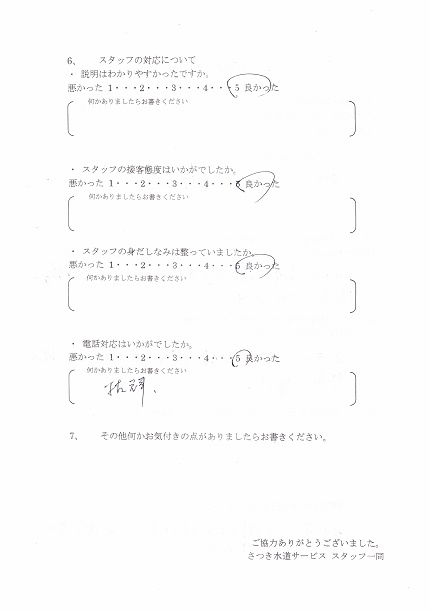 6、 スタッフの対応について
・ 説明はわかりやすかったですか。
悪かった 1・・・2・・・3・・・4・・・5 良かった
何かありましたらお書きください
・ スタッフの接客態度はいかがでしたか。
悪かった 1・・・2・・・3・・・4・・・5 良かった
何かありましたらお書きください
・ スタッフの身だしなみは整っていましたか。
悪かった 1・・・2・・・3・・・4・・・5 良かった
何かありましたらお書きください
・ 電話対応はいかがでしたか。
悪かった 1・・・2・・・3・・・4・・・5 良かった
何かありましたらお書きください
7、 その他何かお気付きの点がありましたらお書きください。
ご協力ありがとうございました。
さつき水道サービス スタッフ一同